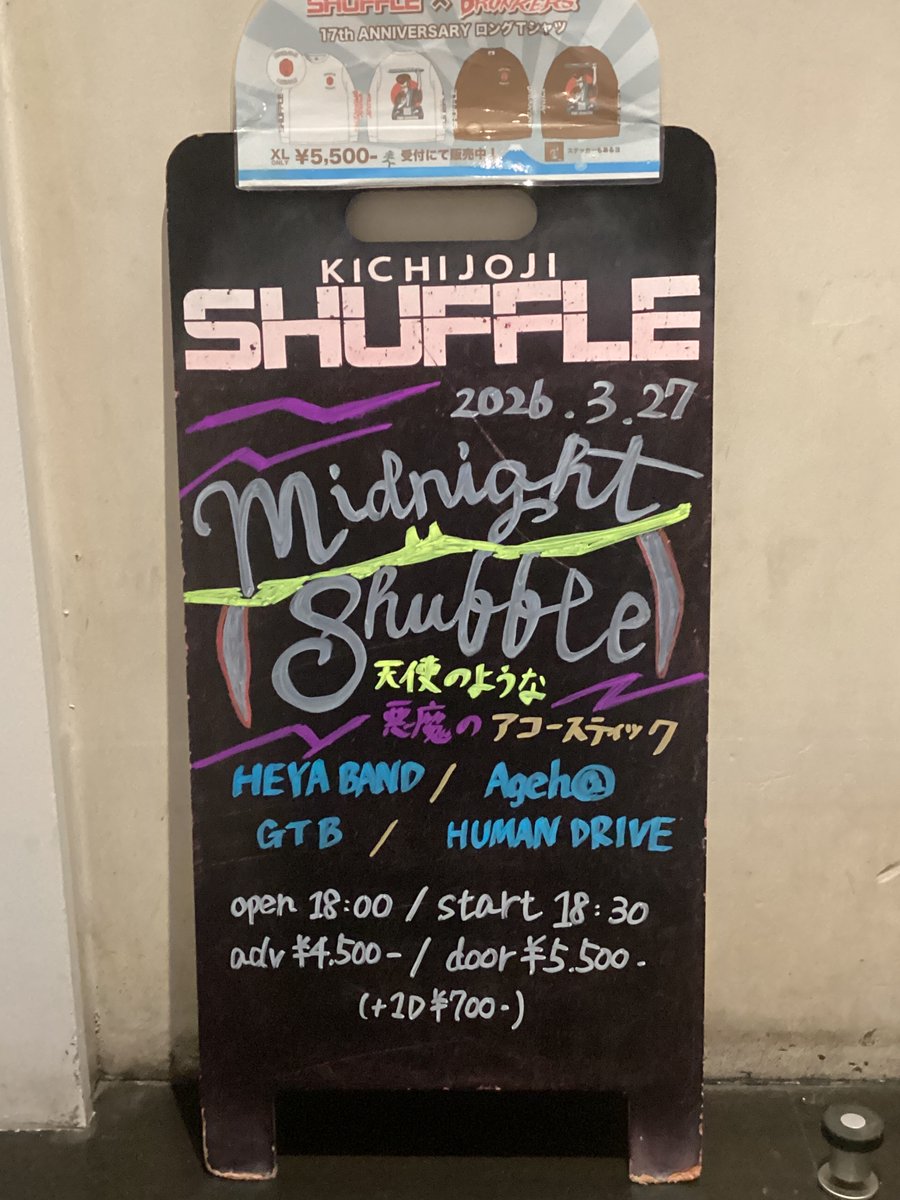 SHUFFLE × DRUNKERS
17th ANNIVERSARY ロングTシャツ
XL ONLY ¥5,500- 受付にて販売中! ステッカーもあるヨ
KICHIJOJI
SHUFFLE
2026.3.27
Midnight
Shubble
天使のような
悪魔の アコースティック
HEYA BAND / Ageh@
GTB / HUMAN DRIVE
open 18:00 / start 18:30
adv ¥4.500- / door ¥5.500-
(+1D ¥700-)